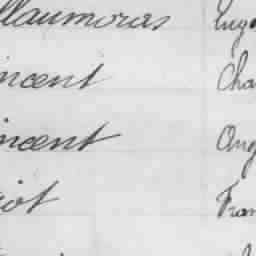 llaumoras Euge
incent Cha
incent Ang
iot Fran